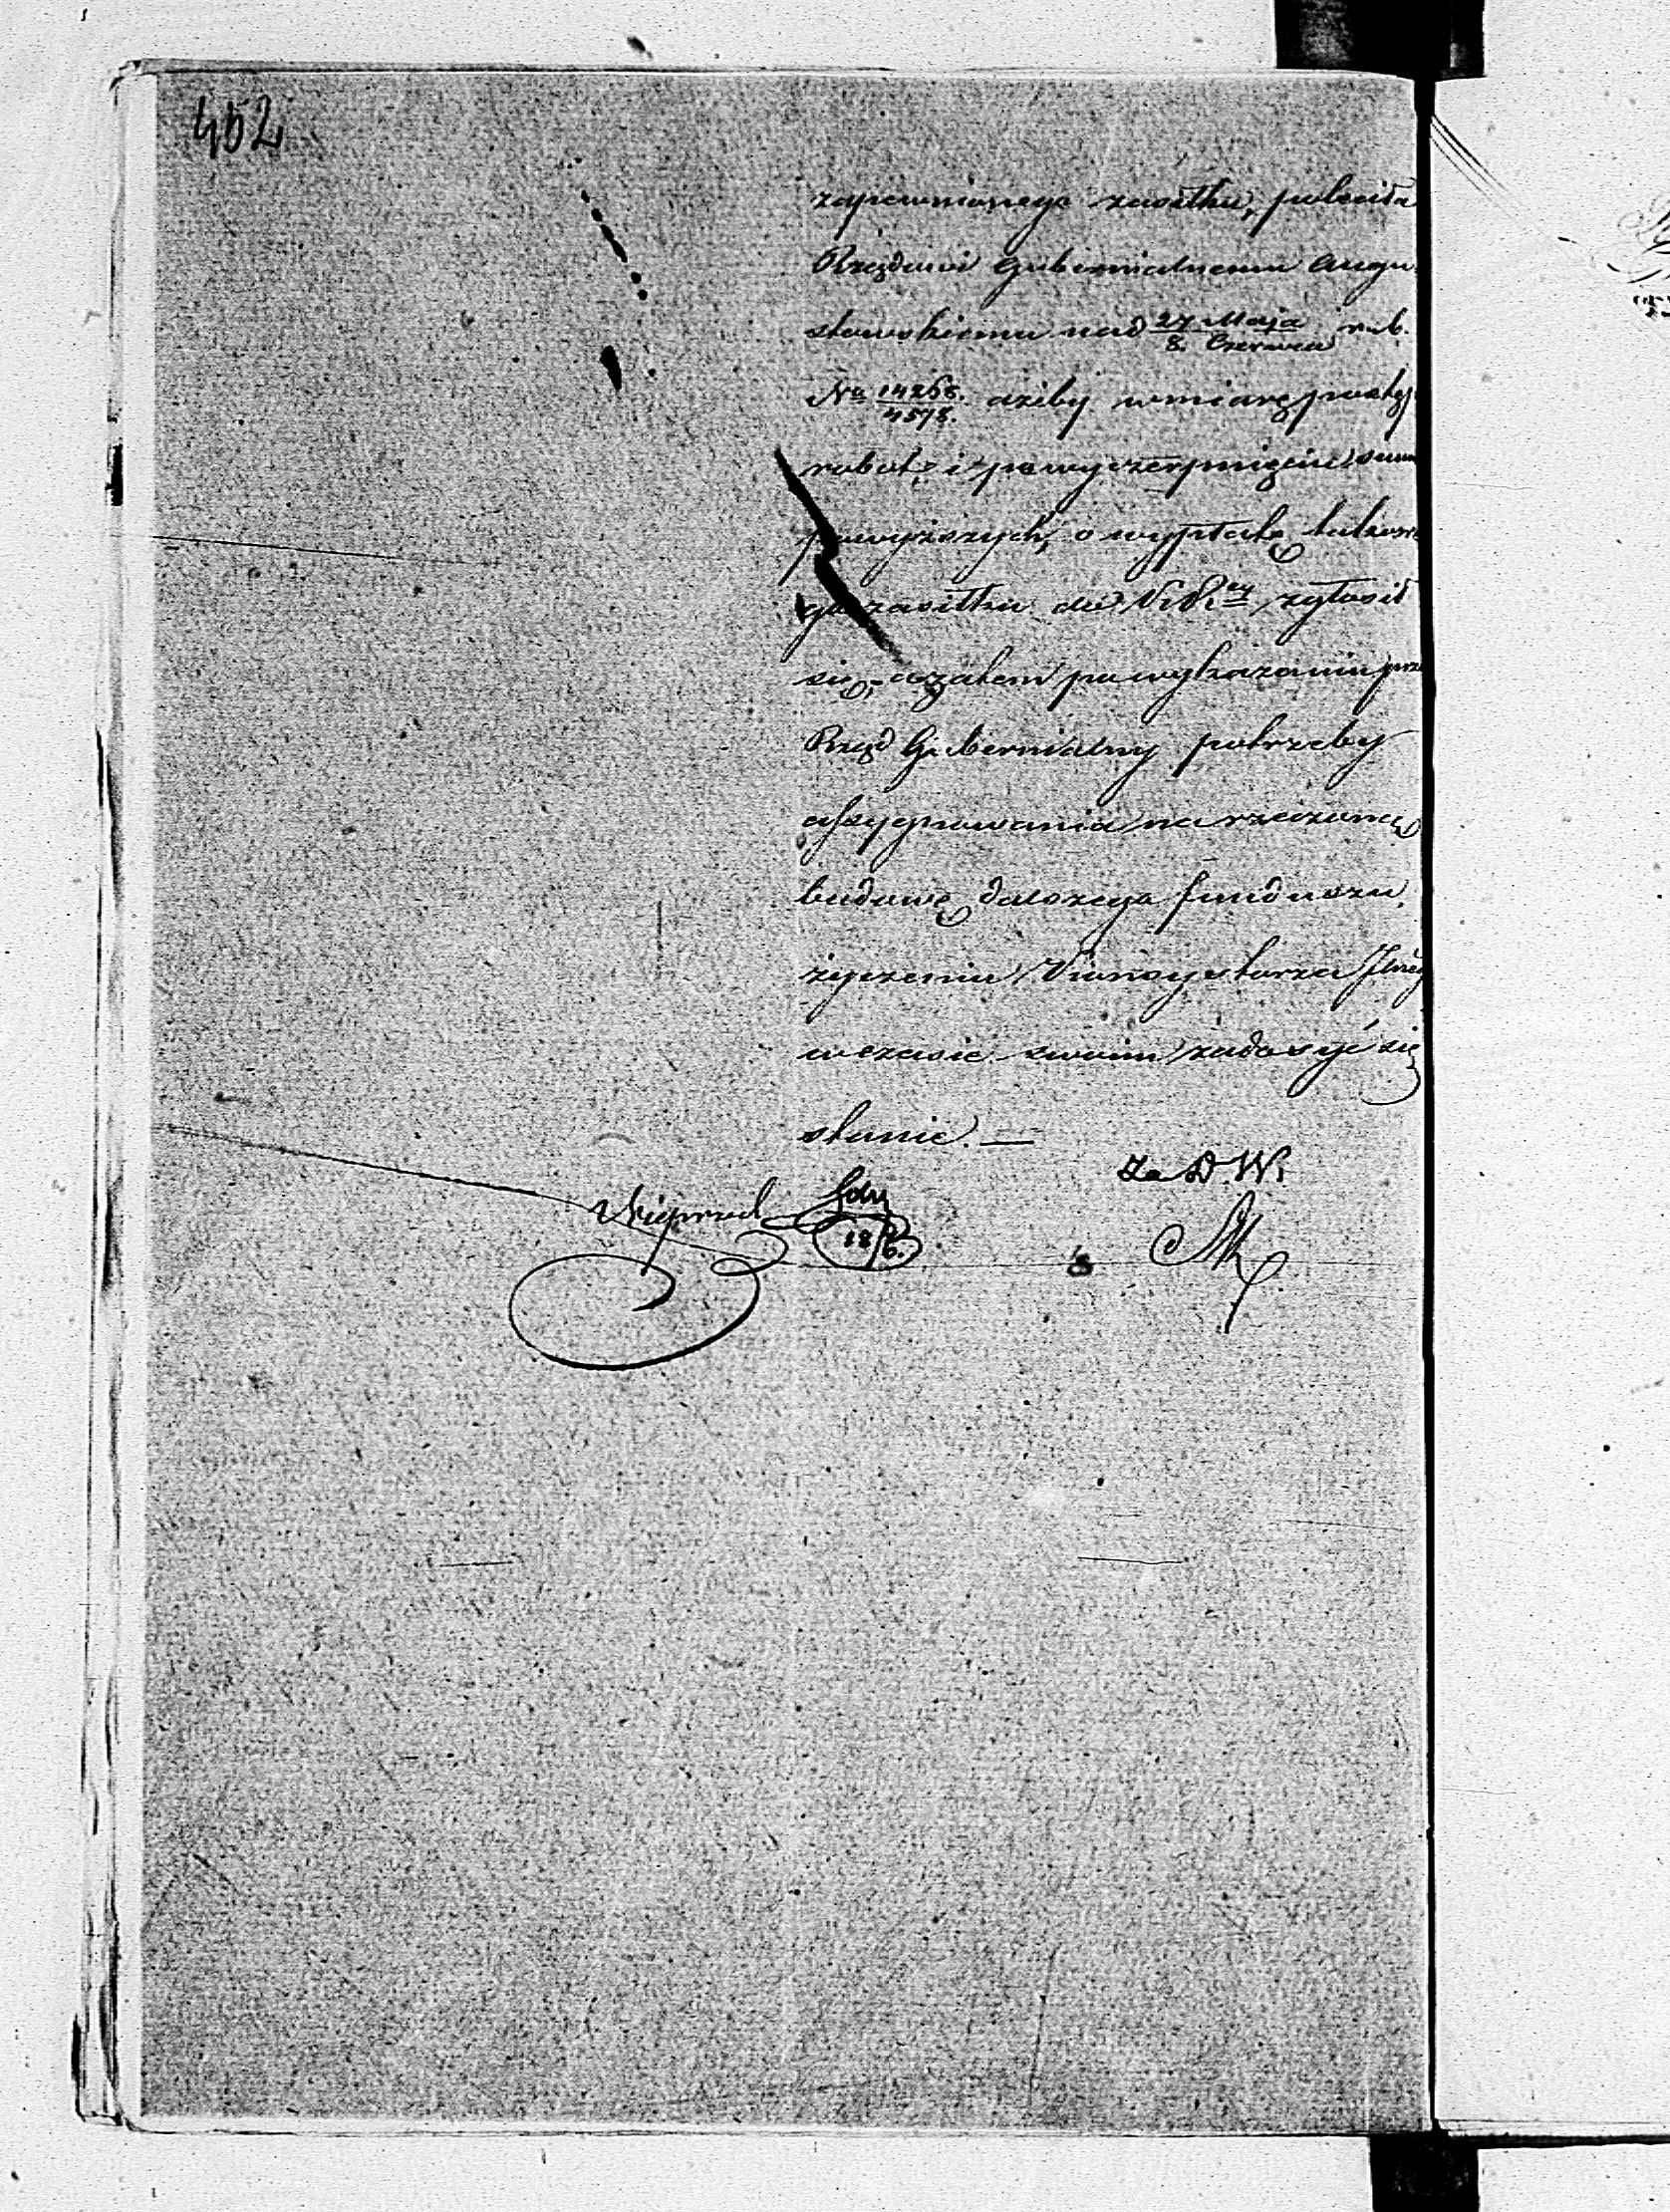 452
zapewnionego zasiłku, poleciła
Rządowi Gubernialnemu Augu
stowskiemu nad 27 Maja / 8. Czerwca r. b.
No 14268. / 4578. ażeby w miarę postęp
robót i po wyczerpnięciu summ
powyższych, o wypłatę takowe
go zasiłku do K. R. zgłosił
się, a zatem po wykazaniu prze
Rząd Gubernialny potrzeby
assygnowania na rzeczoną
budowę dalszego funduszu,
życzeniu Konsystorza
w czasie swoim zadosyć się
stanie. —
Za D. W.
18/6.